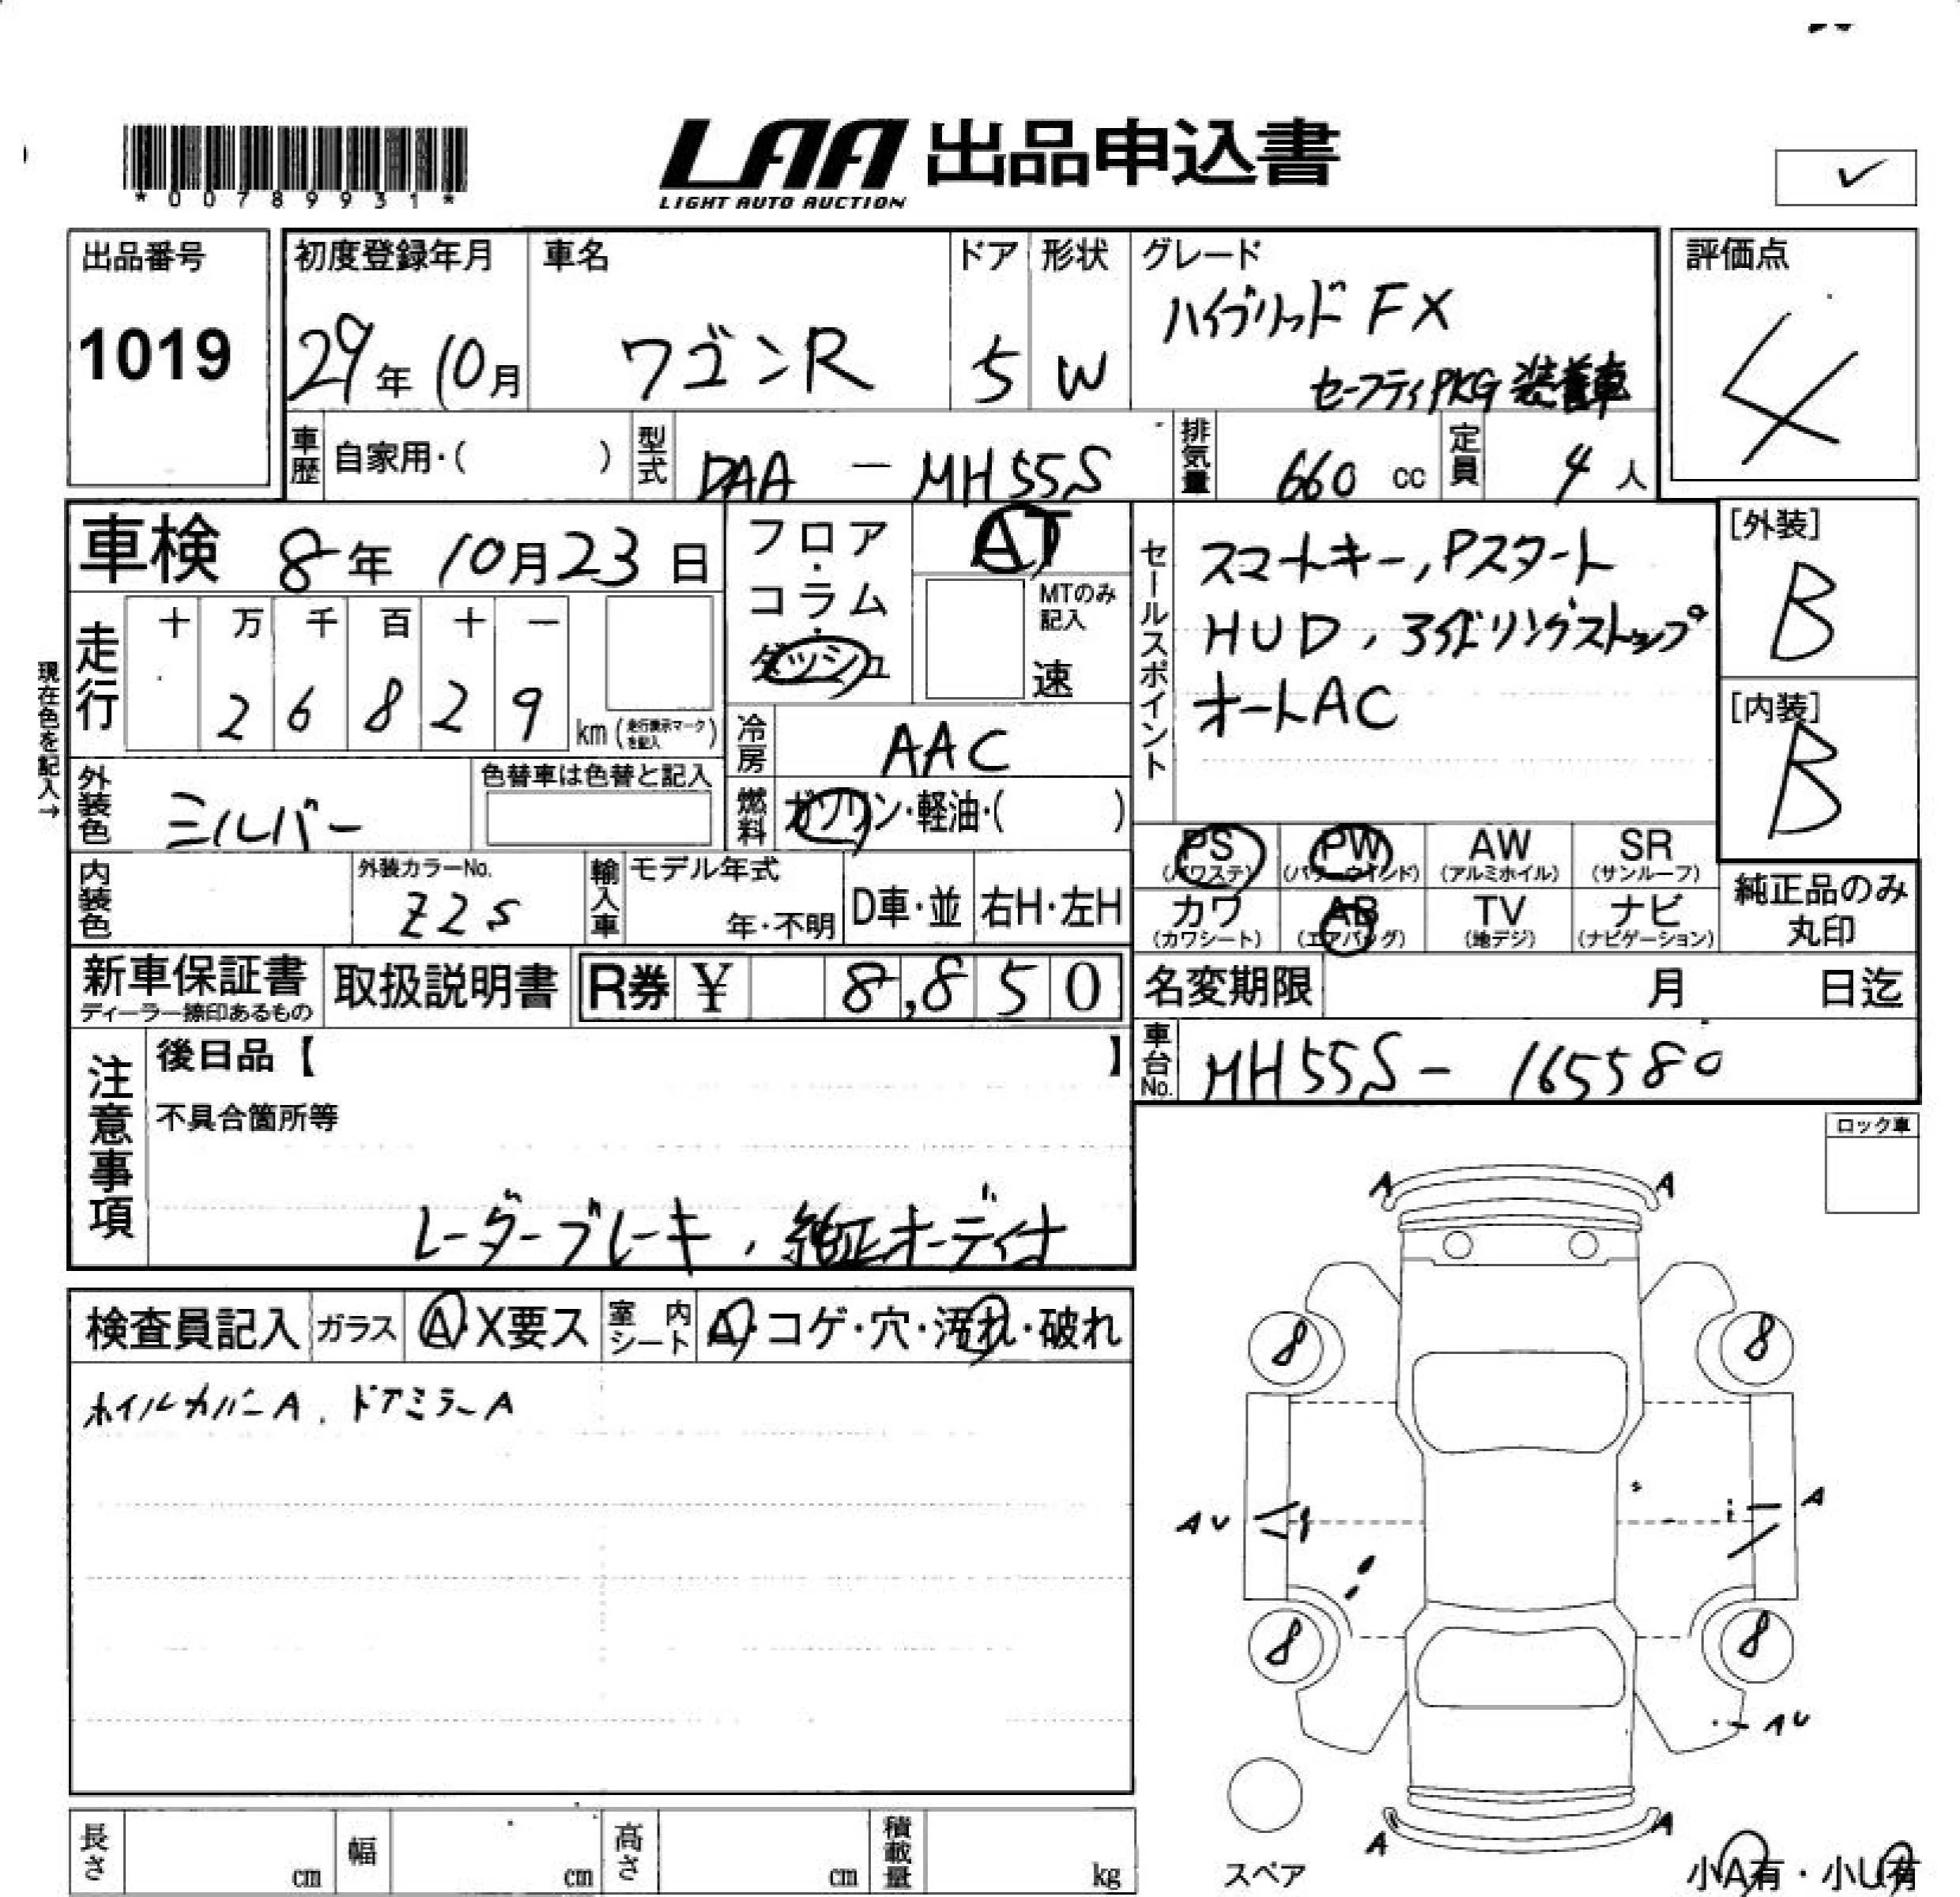 *00789931*
LAA 出品申込書
LIGHT AUTO AUCTION
✓
出品番号
1019
初度登録年月
29年10月
車名
ワゴンR
ドア
5
形状
W
グレード
ハイブリッド FX
セーフティPKG 装着車
評価点
4
車歴 自家用・( )
型式 DAA - MH55S
排気量 660 cc
定員 4 人
車検 8年 10月23日
走行 十 万 千 百 十 一
2 6 8 2 9 km (走行表示マークを記入)
現在色を記入→
フロア・コラム・ダッシュ
AT
MTのみ記入
速
冷房 AAC
燃料 ガソリン・軽油・( )
セールスポイント
スマートキー, Pスタート
HUD, アイドリングストップ
オートAC
[外装]
B
[内装]
B
外装色 シルバー
色替車は色替と記入
内装色
外装カラーNo.
Z2S
輸入車 モデル年式
年・不明
D車・並
右H・左H
PS (パワステ)
PW (パワーウインド)
AW (アルミホイル)
SR (サンルーフ)
カワ (カワシート)
AB (エアバッグ)
TV (地デジ)
ナビ (ナビゲーション)
純正品のみ丸印
新車保証書
ディーラー捺印あるもの
取扱説明書
R券 ¥ 8,850
名変期限 月 日迄
車台No. MH55S - 165580
注意事項
後日品【 】
不具合箇所等
レーダーブレーキ, 純正オーディオ
ロック車
検査員記入
ガラス A・X要ス
室内シート A・コゲ・穴・汚れ・破れ
ホイルカバーA, ドアミラーA
A A
8 8
AU A
8 8
AU
A A
スペア
小A有・小U有
長さ cm
幅 cm
高さ cm
積載量 kg